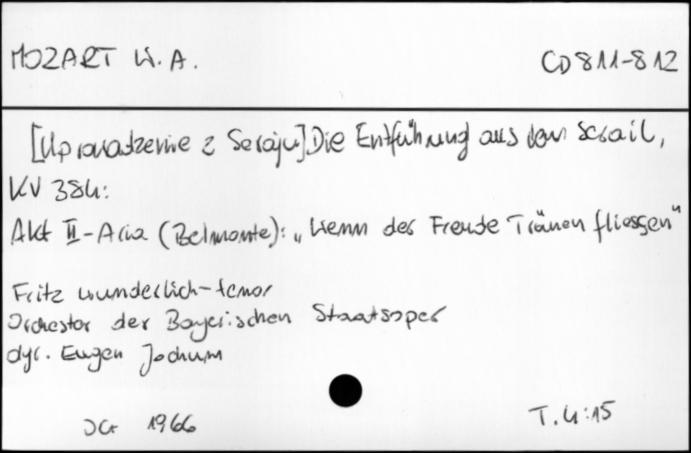 MOZART W. A.
CD 811-812
[Uprowadzenie z Seraju] Die Entführung aus dem Serail,
KV 384:
Akt II - Aria (Belmonte): „Wenn der Freude Tränen fliessen"
Fritz Wunderlich - tenor
Orchester der Bayerischen Staatsoper
dyr. Eugen Jochum
DG 1966
T. 4:15